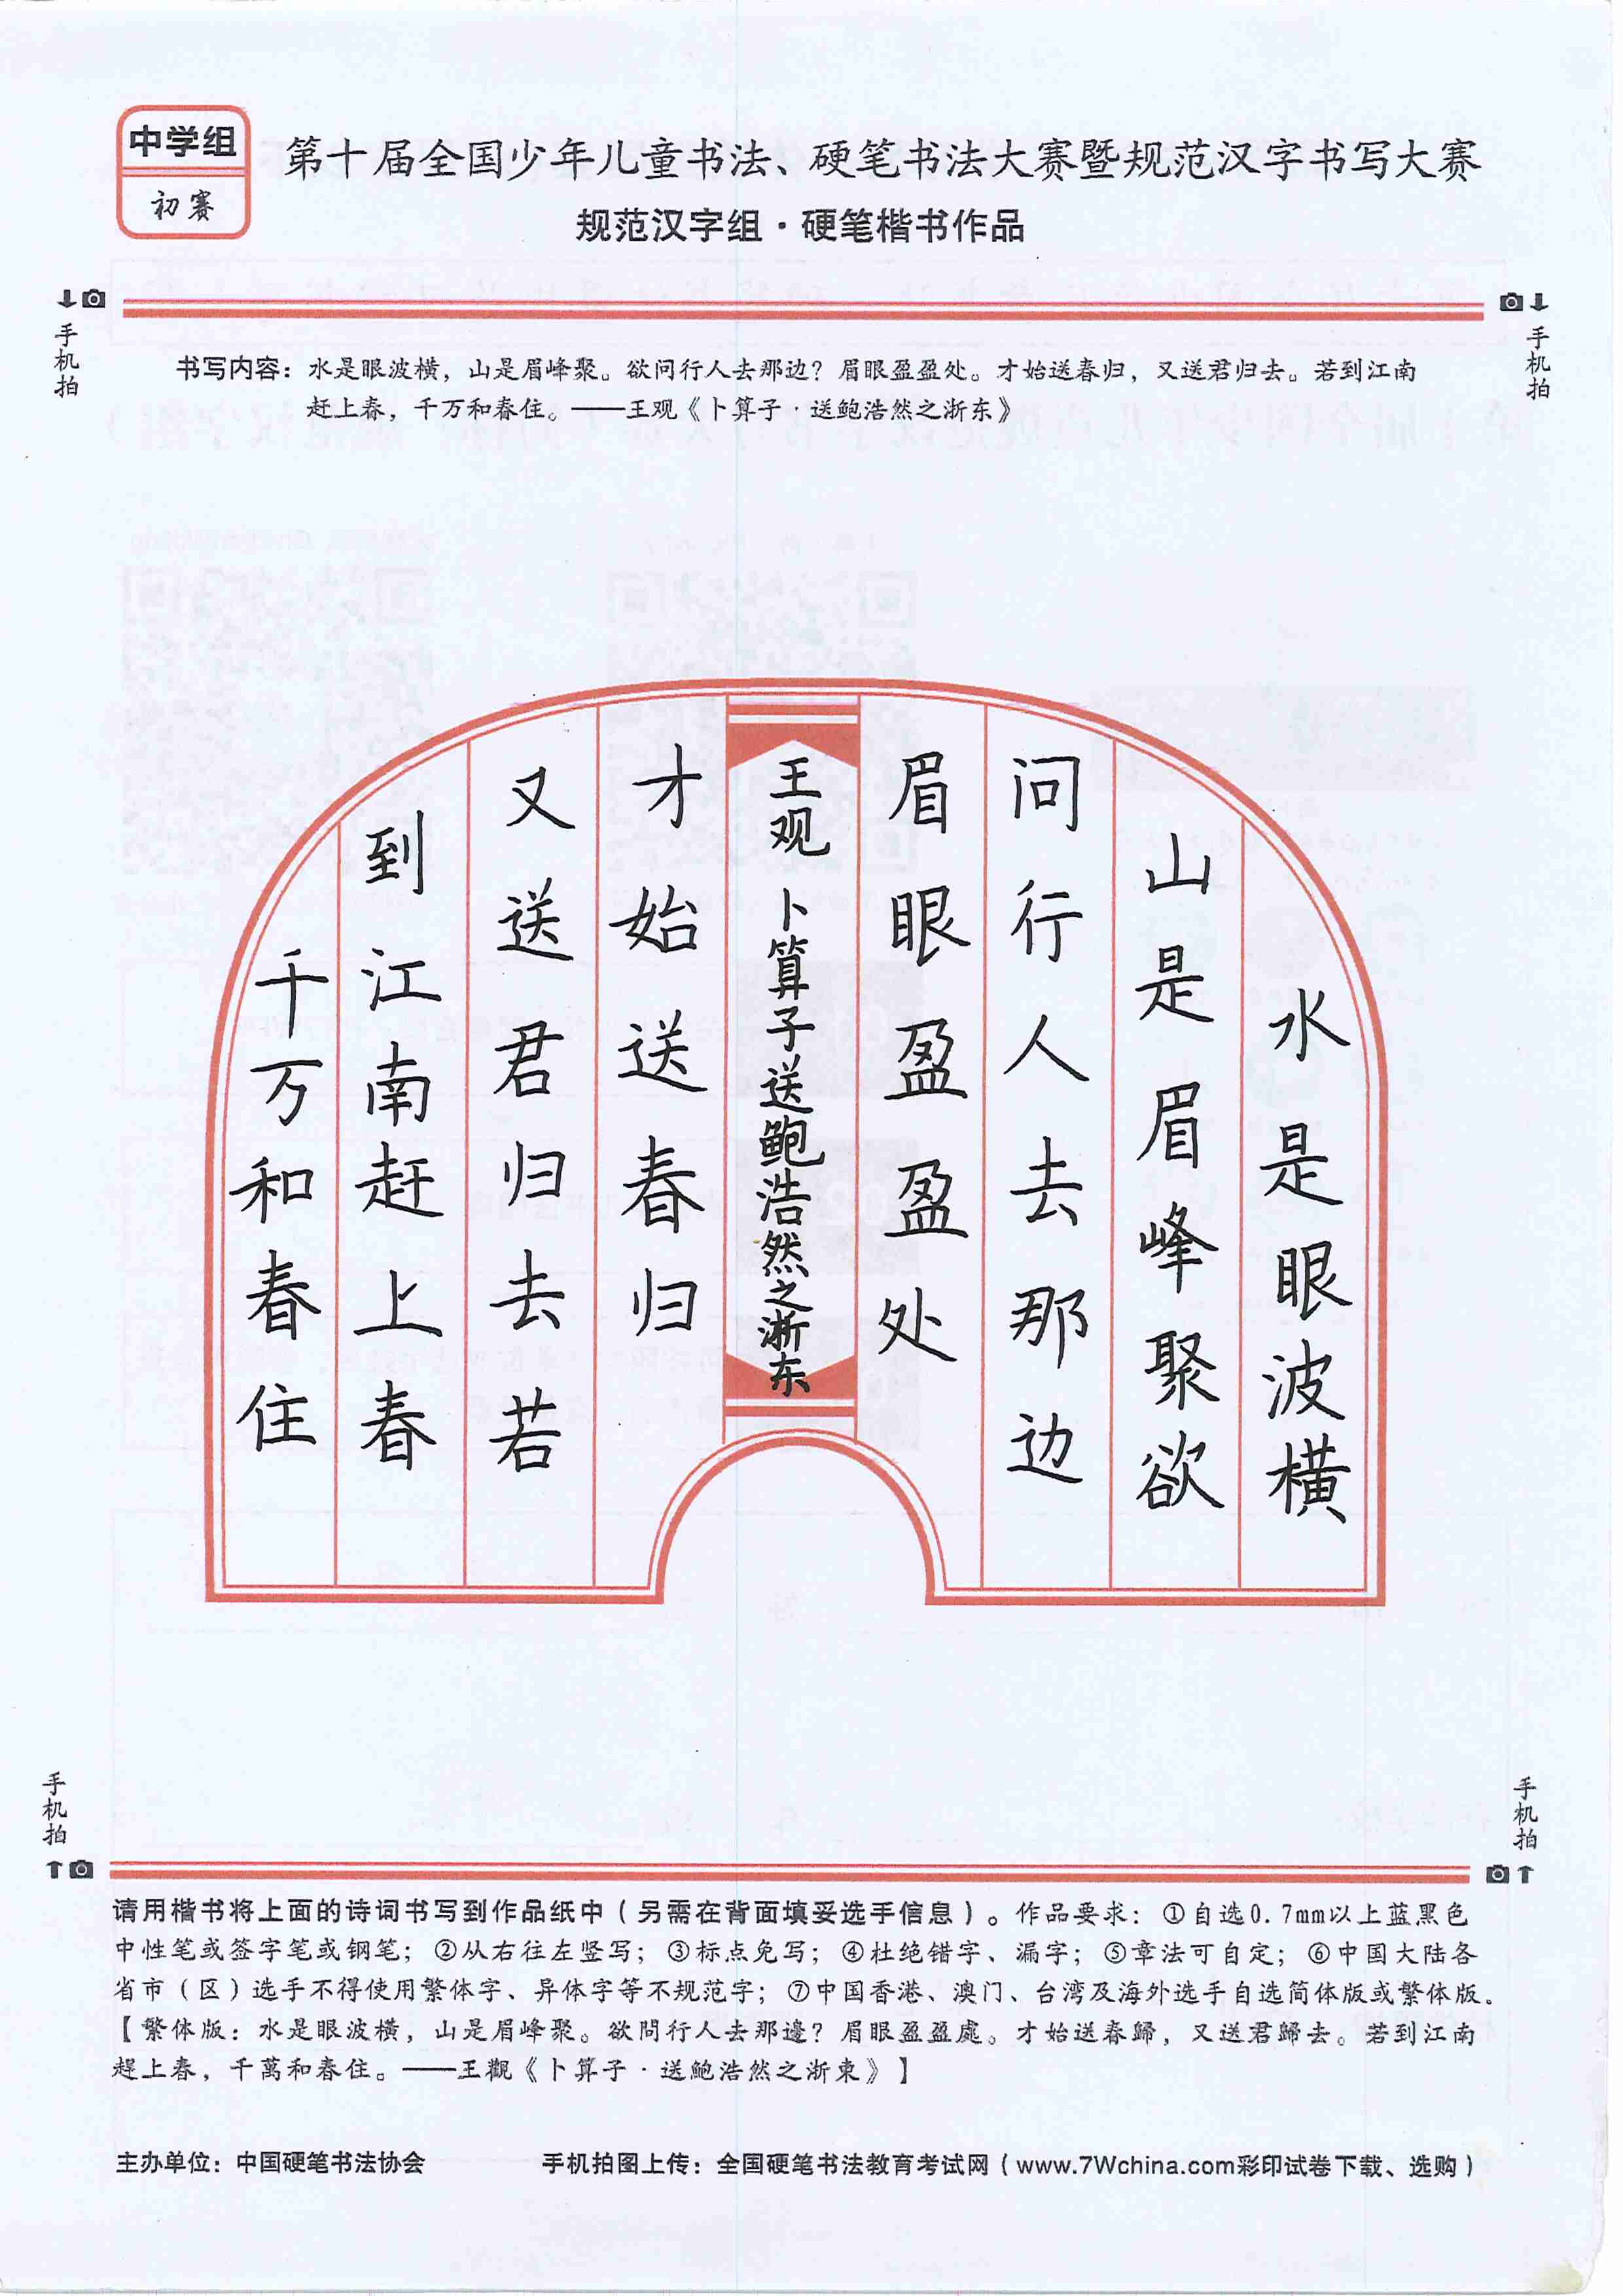 中学组
初赛
第十届全国少年儿童书法、硬笔书法大赛暨规范汉字书写大赛
规范汉字组·硬笔楷书作品
手机拍
手机拍
书写内容：水是眼波横，山是眉峰聚。欲问行人去那边？眉眼盈盈处。才始送春归，又送君归去。若到江南
赶上春，千万和春住。——王观《卜算子·送鲍浩然之浙东》
水是眼波横
山是眉峰聚欲
问行人去那边
眉眼盈盈处
王观 卜算子送鲍浩然之浙东
才始送春归
又送君归去若
到江南赶上春
千万和春住
手机拍
手机拍
请用楷书将上面的诗词书写到作品纸中（另需在背面填妥选手信息）。作品要求：①自选0.7mm以上蓝黑色
中性笔或签字笔或钢笔；②从右往左竖写；③标点免写；④杜绝错字、漏字；⑤章法可自定；⑥中国大陆各
省市（区）选手不得使用繁体字、异体字等不规范字；⑦中国香港、澳门、台湾及海外选手自选简体版或繁体版。
【繁体版：水是眼波横，山是眉峰聚。欲問行人去那邊？眉眼盈盈處。才始送春歸，又送君歸去。若到江南
趕上春，千萬和春住。——王觀《卜算子·送鮑浩然之浙東》】
主办单位：中国硬笔书法协会 手机拍图上传：全国硬笔书法教育考试网（www.7Wchina.com彩印试卷下载、选购）